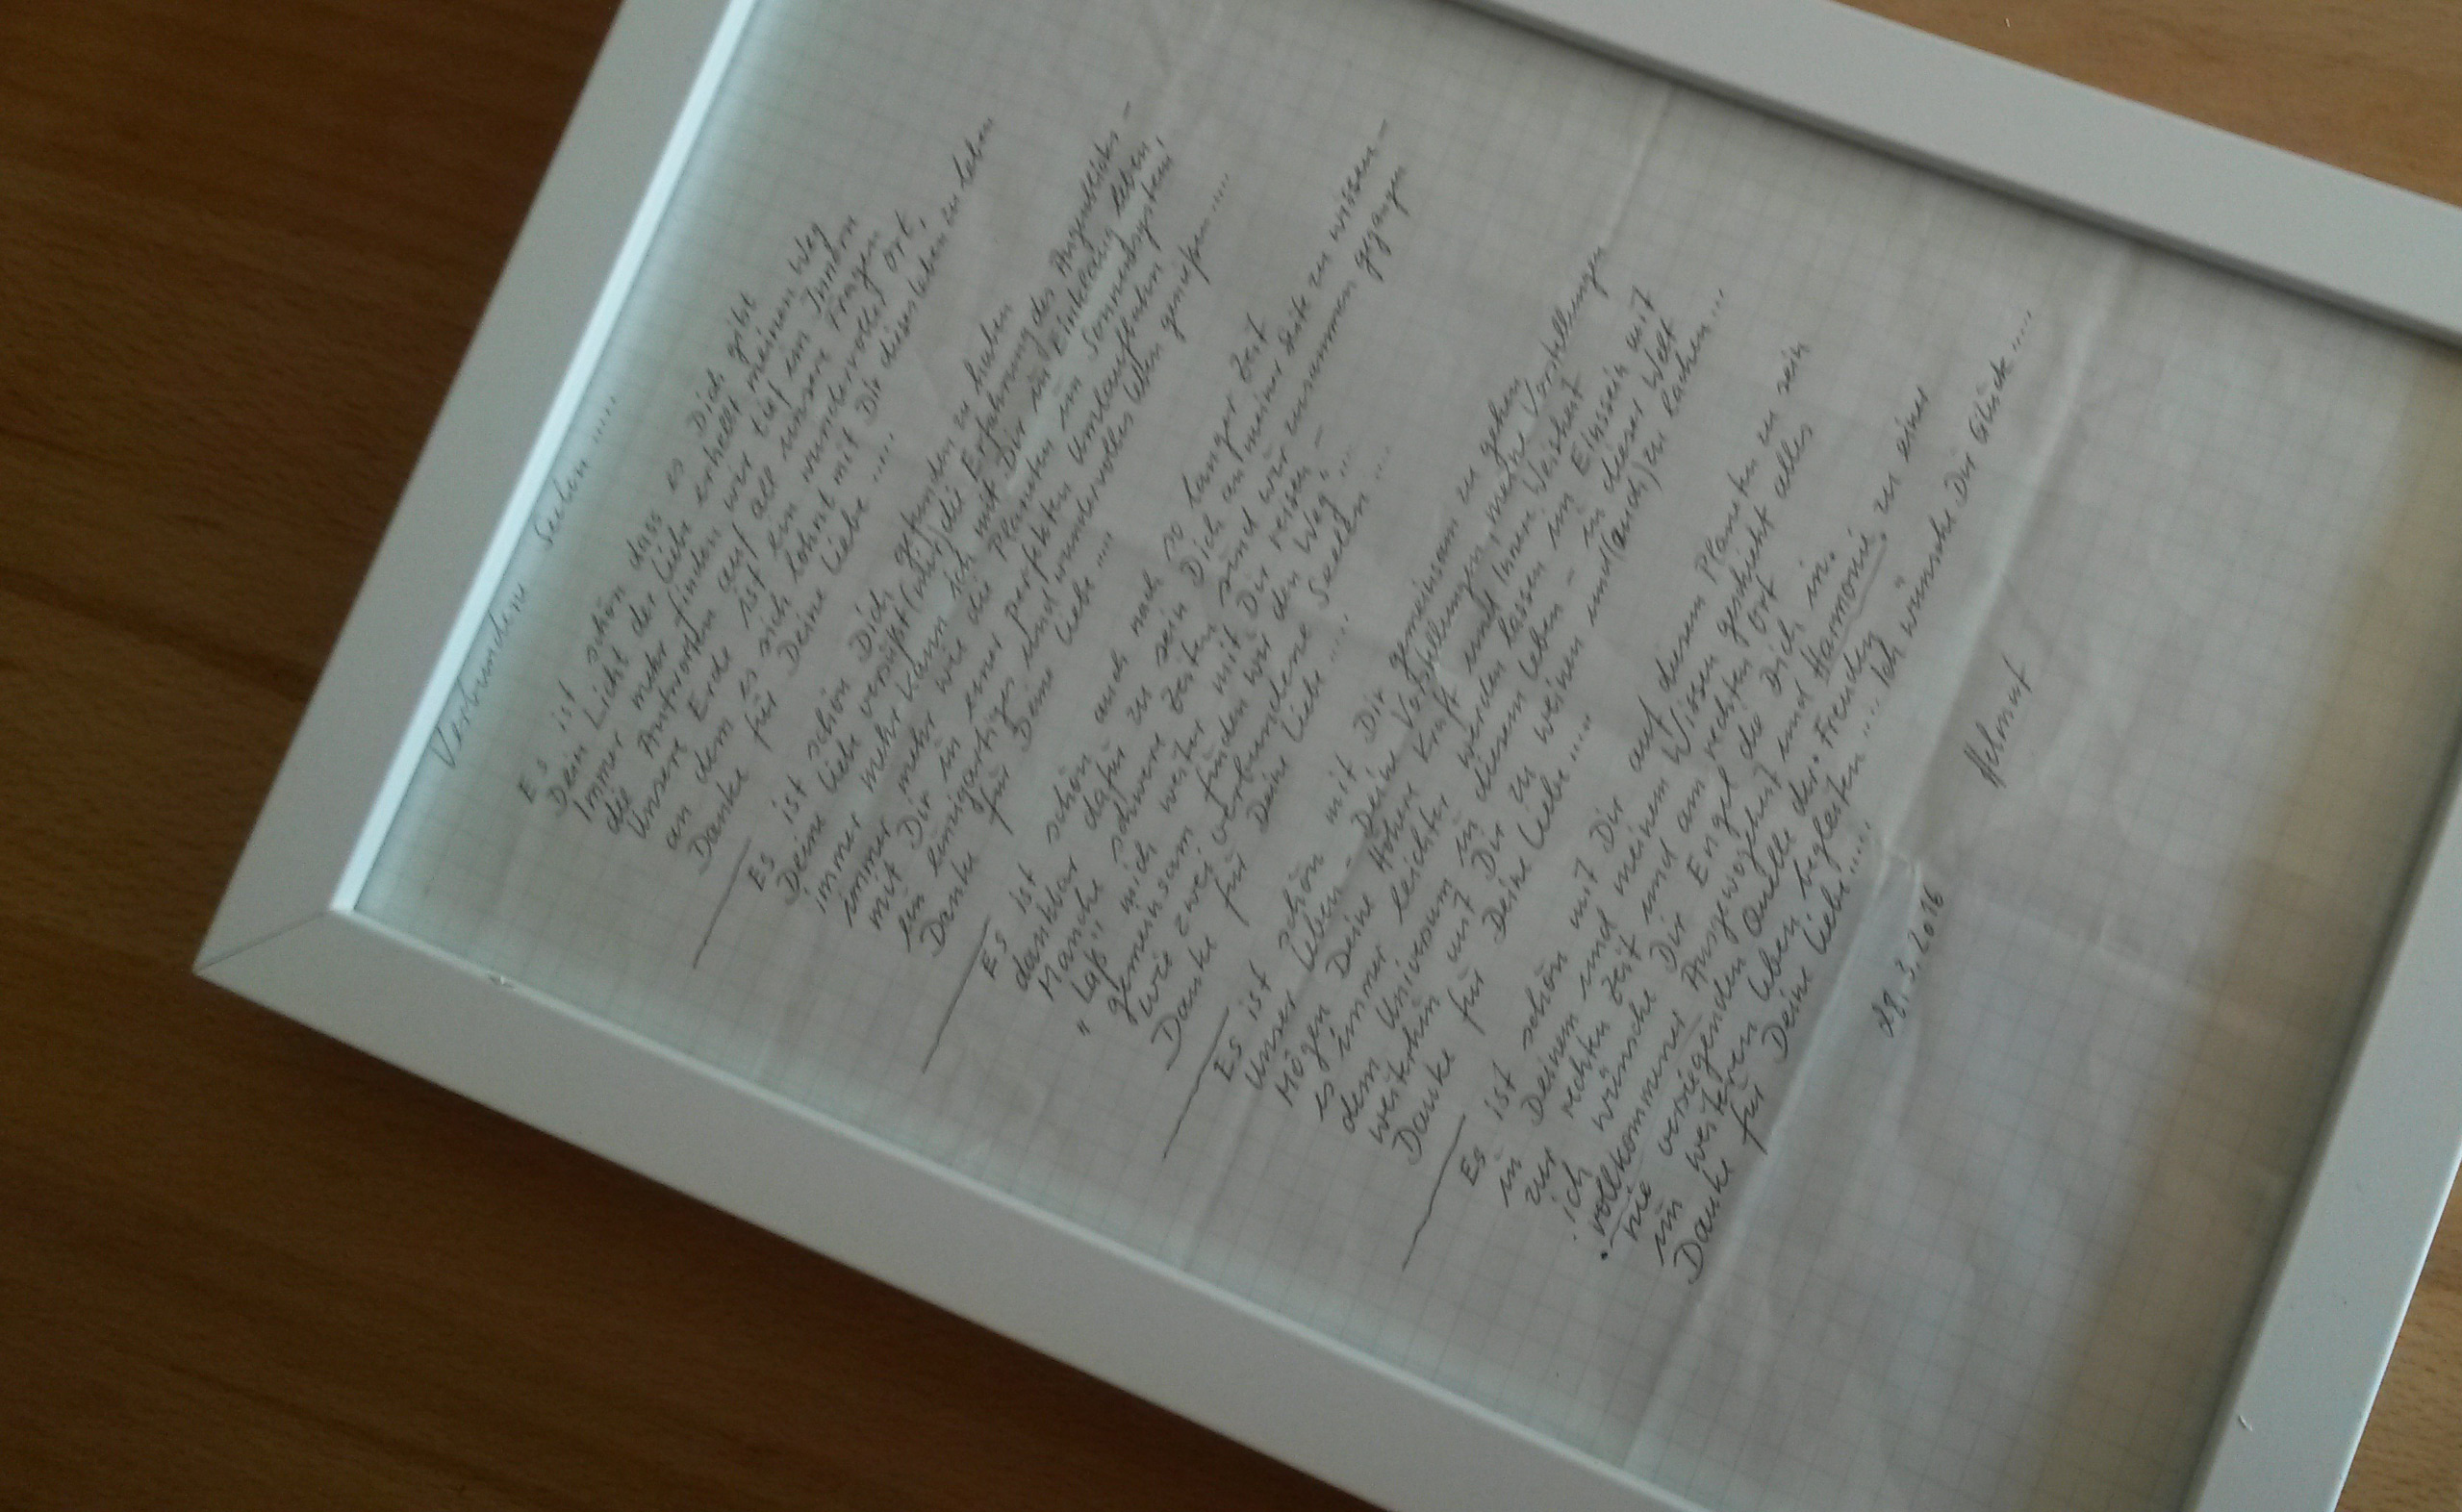 Verbundene Seelen .....
Es ist schön dass es Dich gibt
Dein Licht der Liebe erhellt meinen Weg
Immer mehr finden wir tief im Innern
die Antworten auf all unsere Fragen
Unsere Erde ist ein wundervoller Ort,
an dem es sich lohnt mit Dir dieses Leben zu leben
Danke für Deine Liebe .....
Es ist schön Dich gefunden zu haben
Deine Liebe versüßt (mir) die Erfahrung des Augenblicks -
immer mehr kann ich mit Dir in Einklang leben,
immer mehr wie die Planeten im Sonnensystem,
mit Dir in einer perfekten Umlaufbahn
ein einzigartiges und wundervolles Leben genießen .....
Danke für Deine Liebe ....
Es ist schön auch nach so langer Zeit
dankbar dafür zu sein Dich an meiner Seite zu wissen -
Manche schwere Zeiten sind wir zusammen gegangen
"Laß" mich weiter mit Dir reisen -
gemeinsam finden wir den Weg, ...
wie zwei verbundene Seelen ....
Danke für Deine Liebe .....
Es ist schön mit Dir gemeinsam zu gehen
Unser Leben - Deine Vorstellungen, meine Vorstellungen
Mögen Deine Höhere Kraft und Innere Weisheit
es immer leichter werden lassen im Einssein mit
dem Universum in diesem Leben - in dieser Welt
weiterhin mit Dir zu weinen und (auch) zu lachen ...
Danke für Deine Liebe ....
Es ist schön mit Dir auf diesem Planeten zu sein
in Deinem und meinem Wissen geschieht alles
zur rechten Zeit und am rechten Ort
ich wünsche Dir Engel die Dich in
vollkommener Ausgewogenheit und Harmonie zu einer
nie versiegenden Quelle der Freuden
im weiteren Leben begleiten .... Ich wünsche Dir Glück .....
Danke für Deine Liebe ....
28.3.2016 Helmut